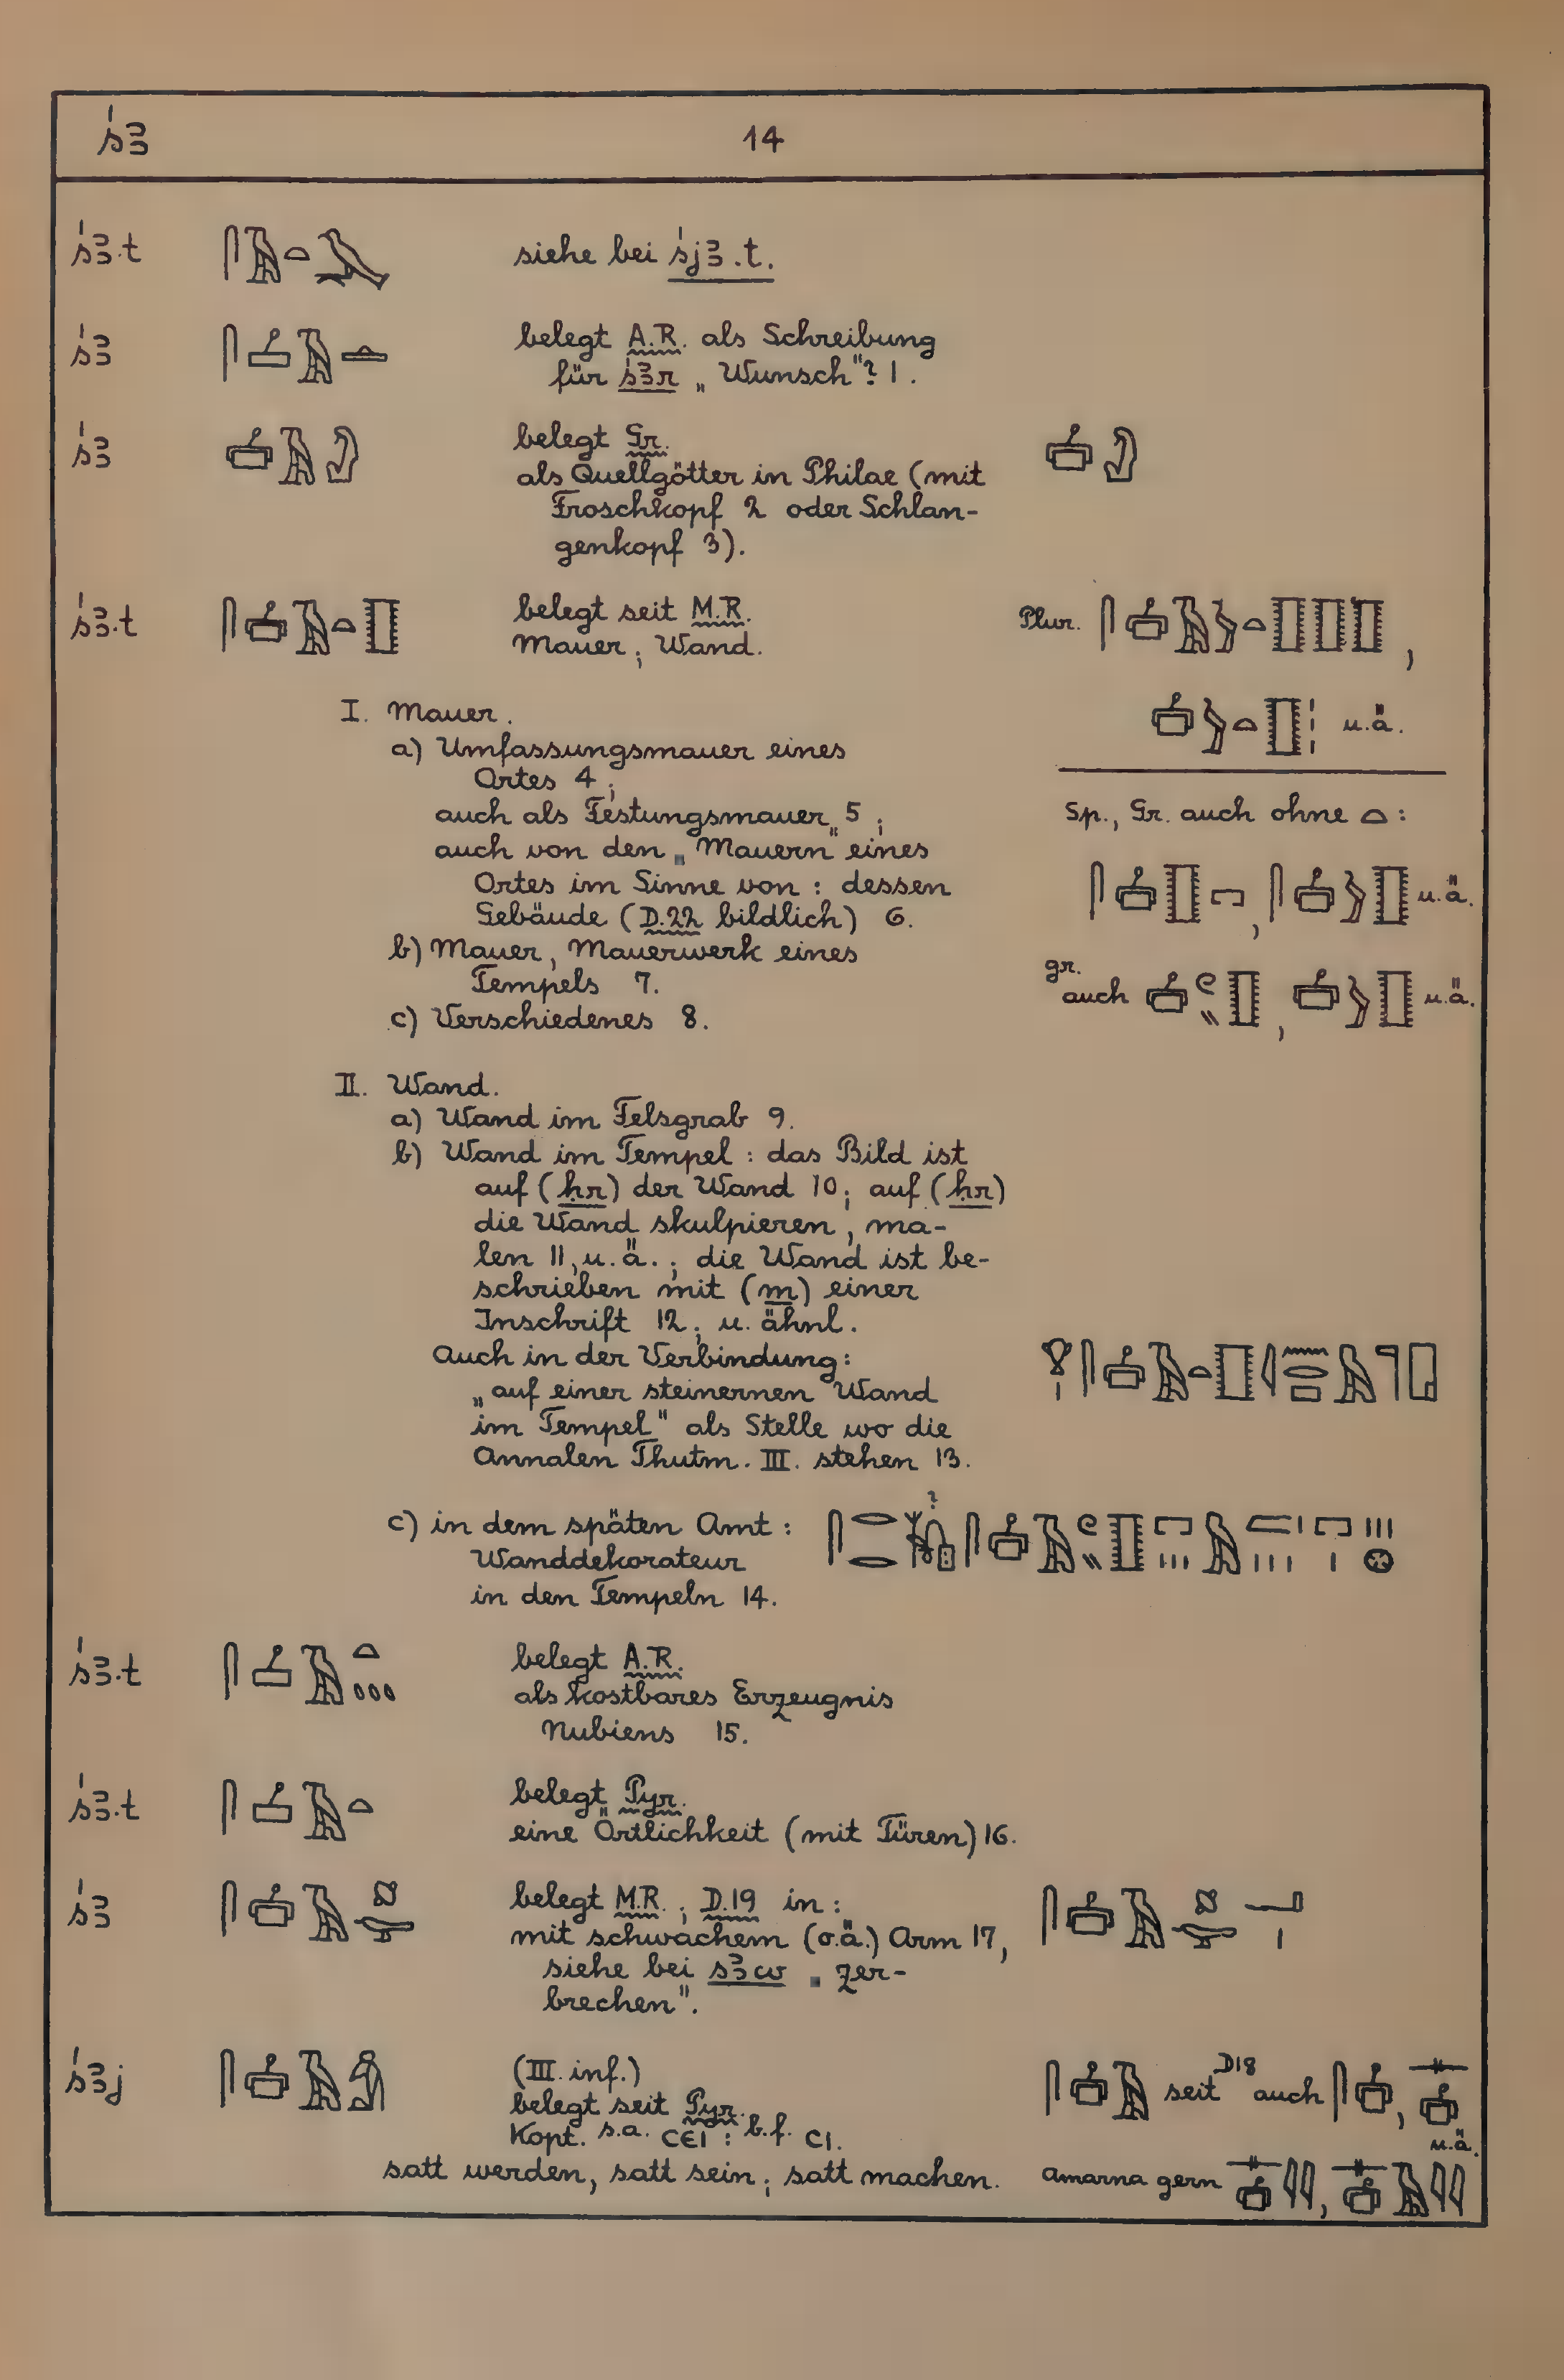 ś3 14
ś3.t siehe bei śj3.t.
ś3 belegt A.R. als Schreibung
für ś3r „Wunsch"? 1.
ś3 belegt Gr.
als Quellgötter in Philae (mit
Froschkopf 2 oder Schlan-
genkopf 3).
ś3.t belegt seit M.R. Plur. ,
Mauer; Wand.
I. Mauer. u.ä.
a) Umfassungsmauer eines
Ortes 4;
auch als Festungsmauer 5; Sp., Gr. auch ohne 𓏏:
auch von den „Mauern" eines
Ortes im Sinne von: dessen , u.ä.
Gebäude (D.22 bildlich) 6.
b) Mauer, Mauerwerk eines
Tempels 7. gr. auch , u.ä.
c) Verschiedenes 8.
II. Wand.
a) Wand im Felsgrab 9.
b) Wand im Tempel: das Bild ist
auf (ḥr) der Wand 10; auf (ḥr)
die Wand skulpieren, ma-
len 11, u.ä.; die Wand ist be-
schrieben mit (m) einer
Inschrift 12; u. ähnl.
Auch in der Verbindung:
„auf einer steinernen Wand
im Tempel" als Stelle wo die
Annalen Thutm. III. stehen 13.
c) in dem späten Amt: ?
Wanddekorateur
in den Tempeln 14.
ś3.t belegt A.R.
als kostbares Erzeugnis
Nubiens 15.
ś3.t belegt Pyr.
eine Örtlichkeit (mit Türen) 16.
ś3 belegt M.R.; D.19 in:
mit schwachem (o.ä.) Arm 17,
siehe bei s3w „zer-
brechen".
ś3j (III. inf.) seit D18 auch , u.ä.
belegt seit Pyr.
Kopt. s.a. ⲥⲉⲓ: b.f. ⲥⲓ.
satt werden, satt sein; satt machen. Amarna gern ,